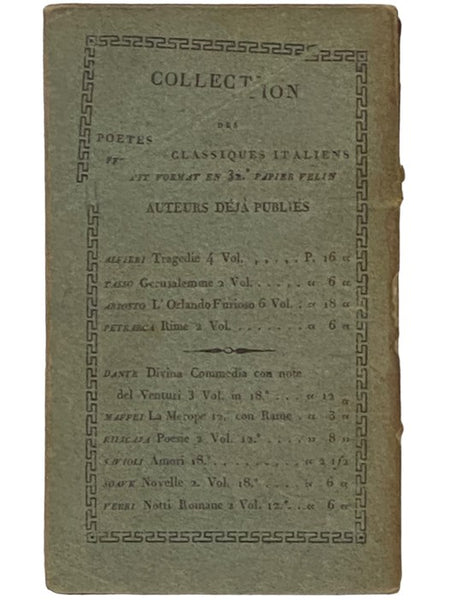 COLLECTION
DES
POETES CLASSIQUES ITALIENS
FORMAT EN 32.º PAPIER VELIN
AUTEURS DÉJÀ PUBLIÉS
ALFIERI Tragedie 4 Vol. , . . . . P. 16 «
TASSO Gerusalemme 2 Vol. . . . « 6 «
ARIOSTO L'Orlando Furioso 6 Vol. . « 18 «
PETRARCA Rime 2 Vol. . . . . . . « 6 «
DANTE Divina Commedia con note
del Venturi 3 Vol. in 18.º . . . « 12 «
MAFFEI La Merope 12. con Rame . « 3 «
Poesie 2 Vol. 12.º . . . . » 8 »
SAVIOLI Amori 18.º . . . . . . . . « 2 1/2
SOAVE Novelle 2 Vol. 18.º . . . . « 6 «
VERRI Notti Romane 2 Vol. 12.º . . « 6 «